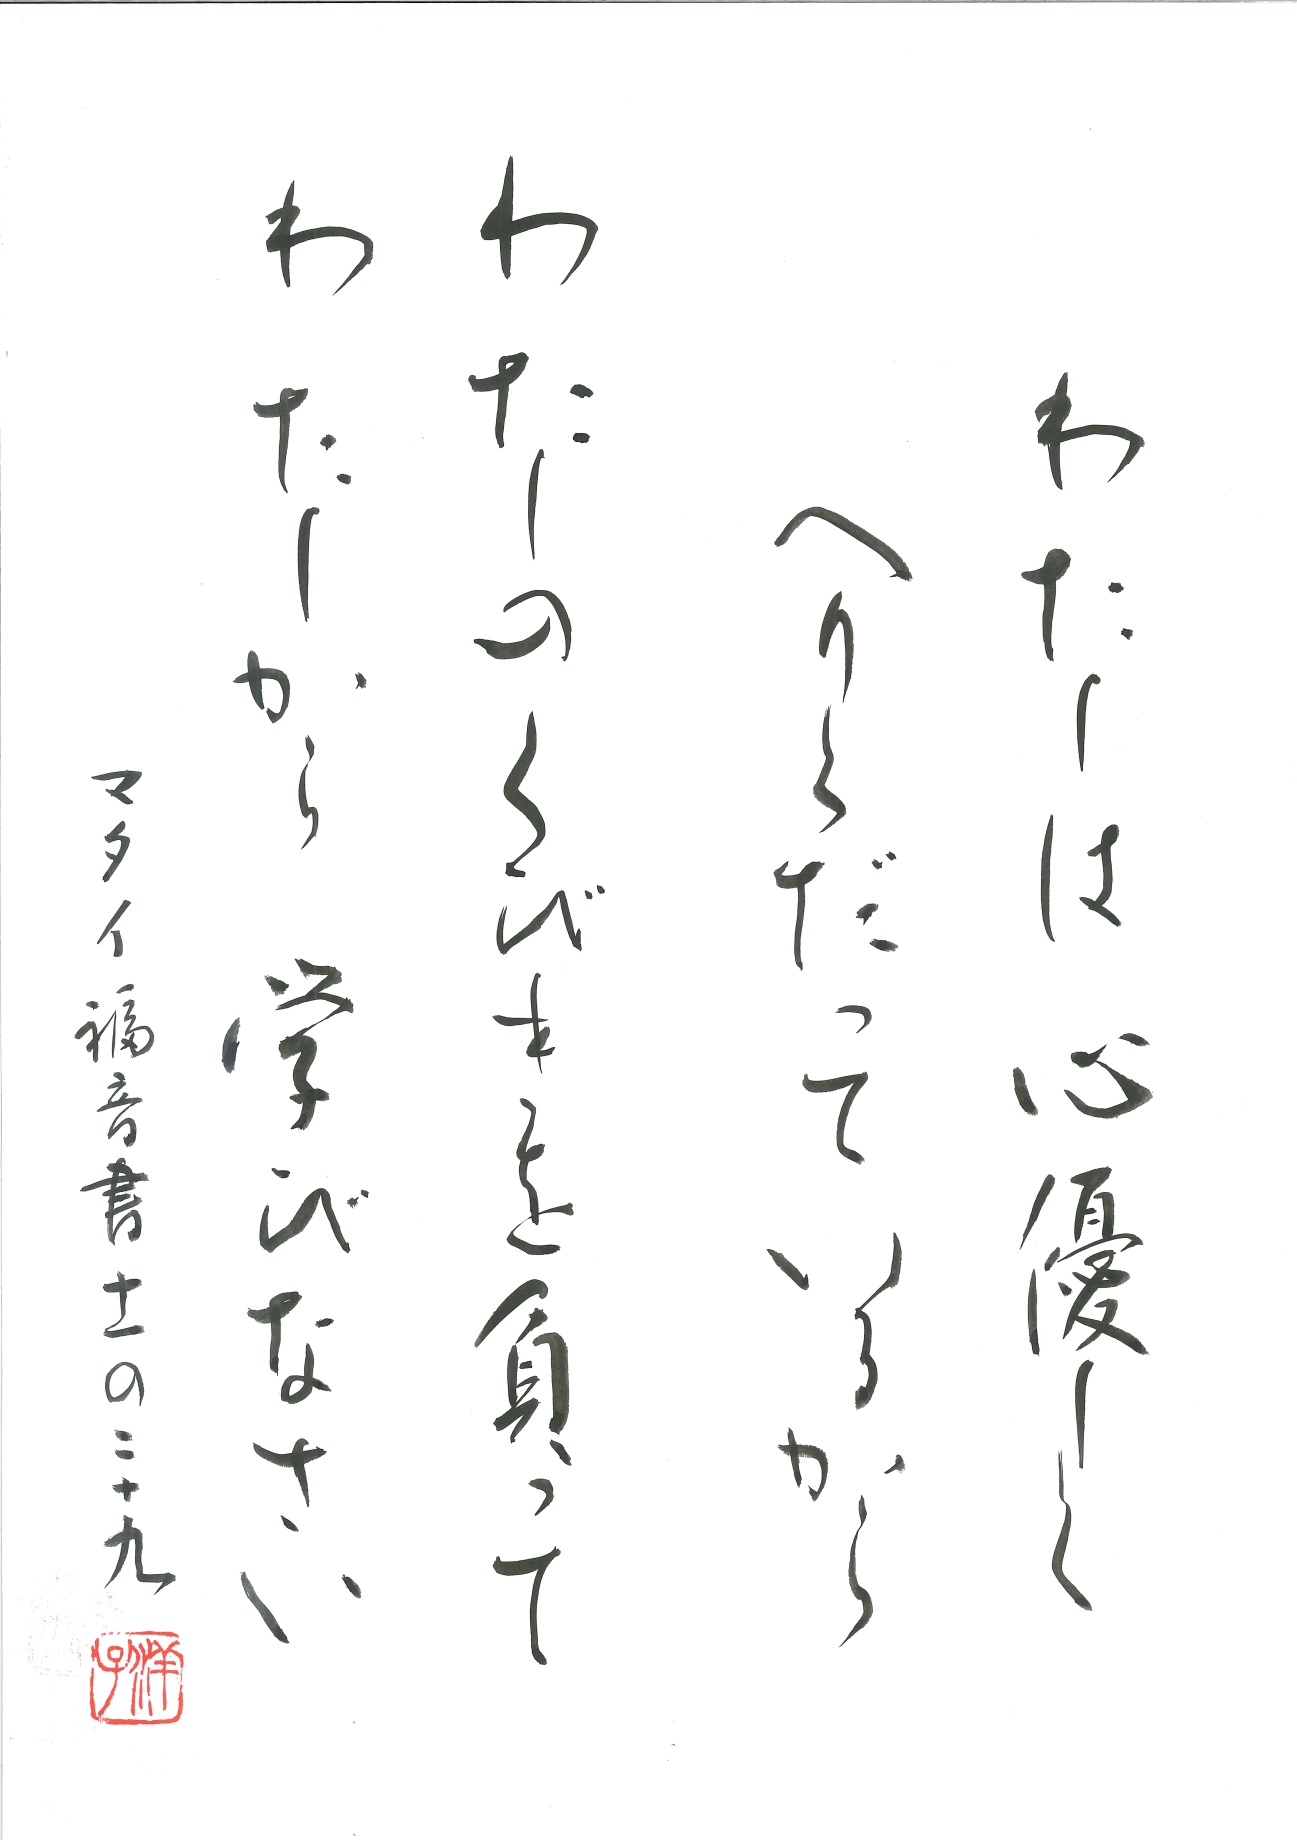 わたしは心優しく
へりくだっているから
わたしのくびきを負って
わたしから学びなさい
マタイ福音書十一の二十九
洋子